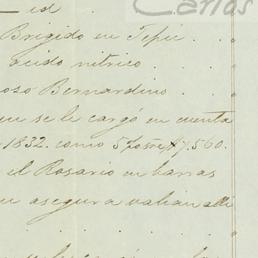 Carlos
id .
Brigido en Tepic .
acido nitrico .
oso Bernardino .
se le cargó en cuenta
1832. como 5 7.560.
el Rosario en barras
asegura valian alli